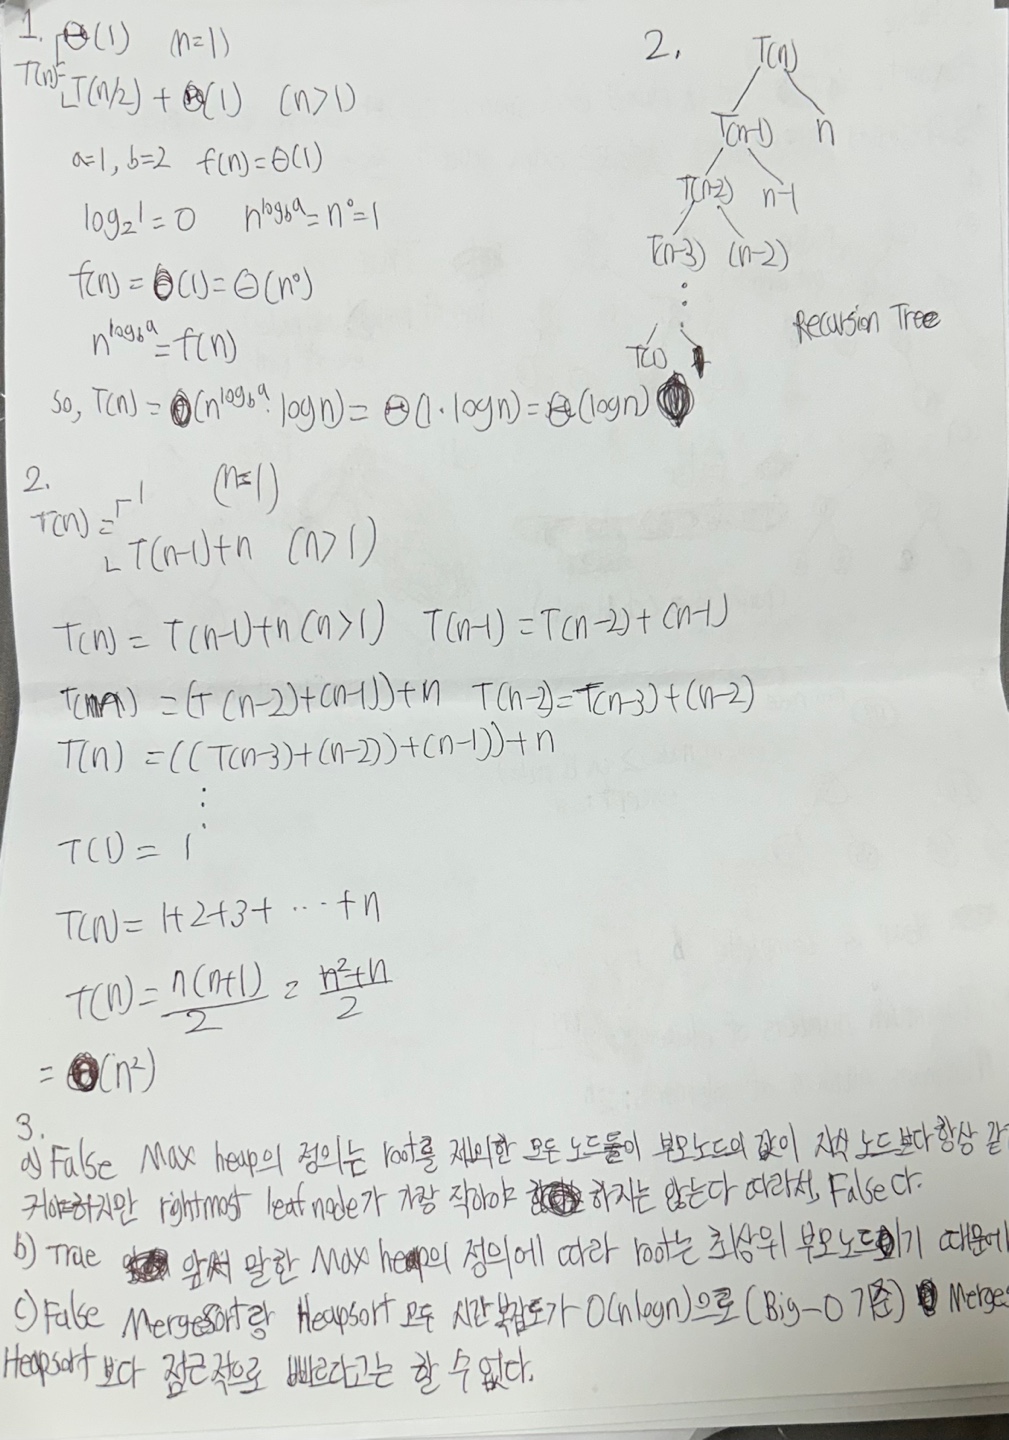 1. Θ(1) (n=1)
T(n)= T(n/2) + Θ(1) (n>1)
a=1, b=2 f(n)=Θ(1)
log₂1=0 n^log_b a = n⁰=1
f(n) = Θ(1) = Θ(n⁰)
n^log_b a = f(n)
So, T(n) = Θ(n^log_b a · logn) = Θ(1·logn) = Θ(logn)
2. T(n)
T(n-1) n
T(n-2) n-1
T(n-3) (n-2)
⋮
T(1)
Recursion Tree
2.
T(n) = 1 (n=1)
T(n-1)+n (n>1)
T(n) = T(n-1)+n (n>1) T(n-1) = T(n-2)+(n-1)
= (T(n-2)+(n-1))+n T(n-2)=T(n-3)+(n-2)
T(n) = ((T(n-3)+(n-2))+(n-1))+n
⋮
T(1) = 1
T(n) = 1+2+3+ ⋯ +n
T(n) = n(n+1)/2 = n²+n/2
= Θ(n²)
3.
a) False Max heap의 정의는 root를 제외한 모든 노드들이 부모노드의 값이 자식 노드보다 항상 같
거나 하지만 rightmost leaf node가 가장 작아야 하지는 않는다 따라서, False다.
b) True 앞서 말한 Max heap의 정의에 따라 root는 최상위 부모노드이기 때문에
c) False MergeSort랑 Heapsort 모두 시간 복잡도가 O(nlogn)으로 (Big-O 기준) Merge
Heapsort 보다 점근적으로 빠르다고는 할 수 없다.